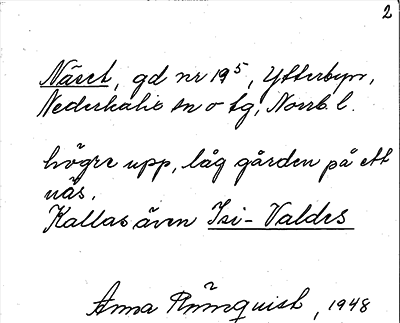 2
Näset, gd nr 19⁵, Ytterbyn,
Nederkalix sn o tg, Norrb. l.
högre upp, låg gården på ett
näs.
Kallas även Isi-Valdes
Anna Rönnquist, 1948